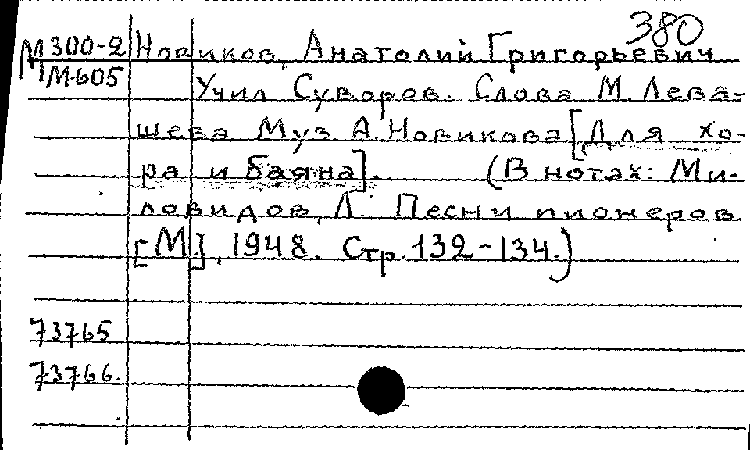 380
М 300-2 Новиков, Анатолий Григорьевич
М-605 Учил Суворов. Слова М. Лева-
шева Муз А. Новикова [Для хо-
ра и баяна]. (В нотах: Ми-
ловидов, Л. Песни пионеров
[М], 1948. Стр. 132-134.)
73765
73766.